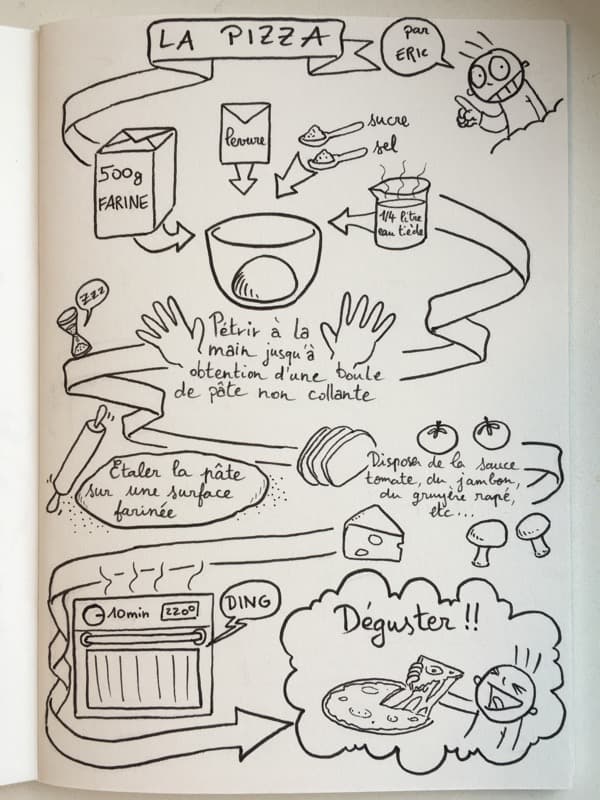 LA PIZZA
par
ERIC
levure
sucre
sel
500g
FARINE
1/4 litre
eau tiède
ZZZ
Pétrir à la
main jusqu'à
obtention d'une boule
de pâte non collante
Étaler la pâte
sur une surface
farinée
Disposer de la sauce
tomate, du jambon,
du gruyère rapé,
etc...
10min
220°
DING
Déguster !!